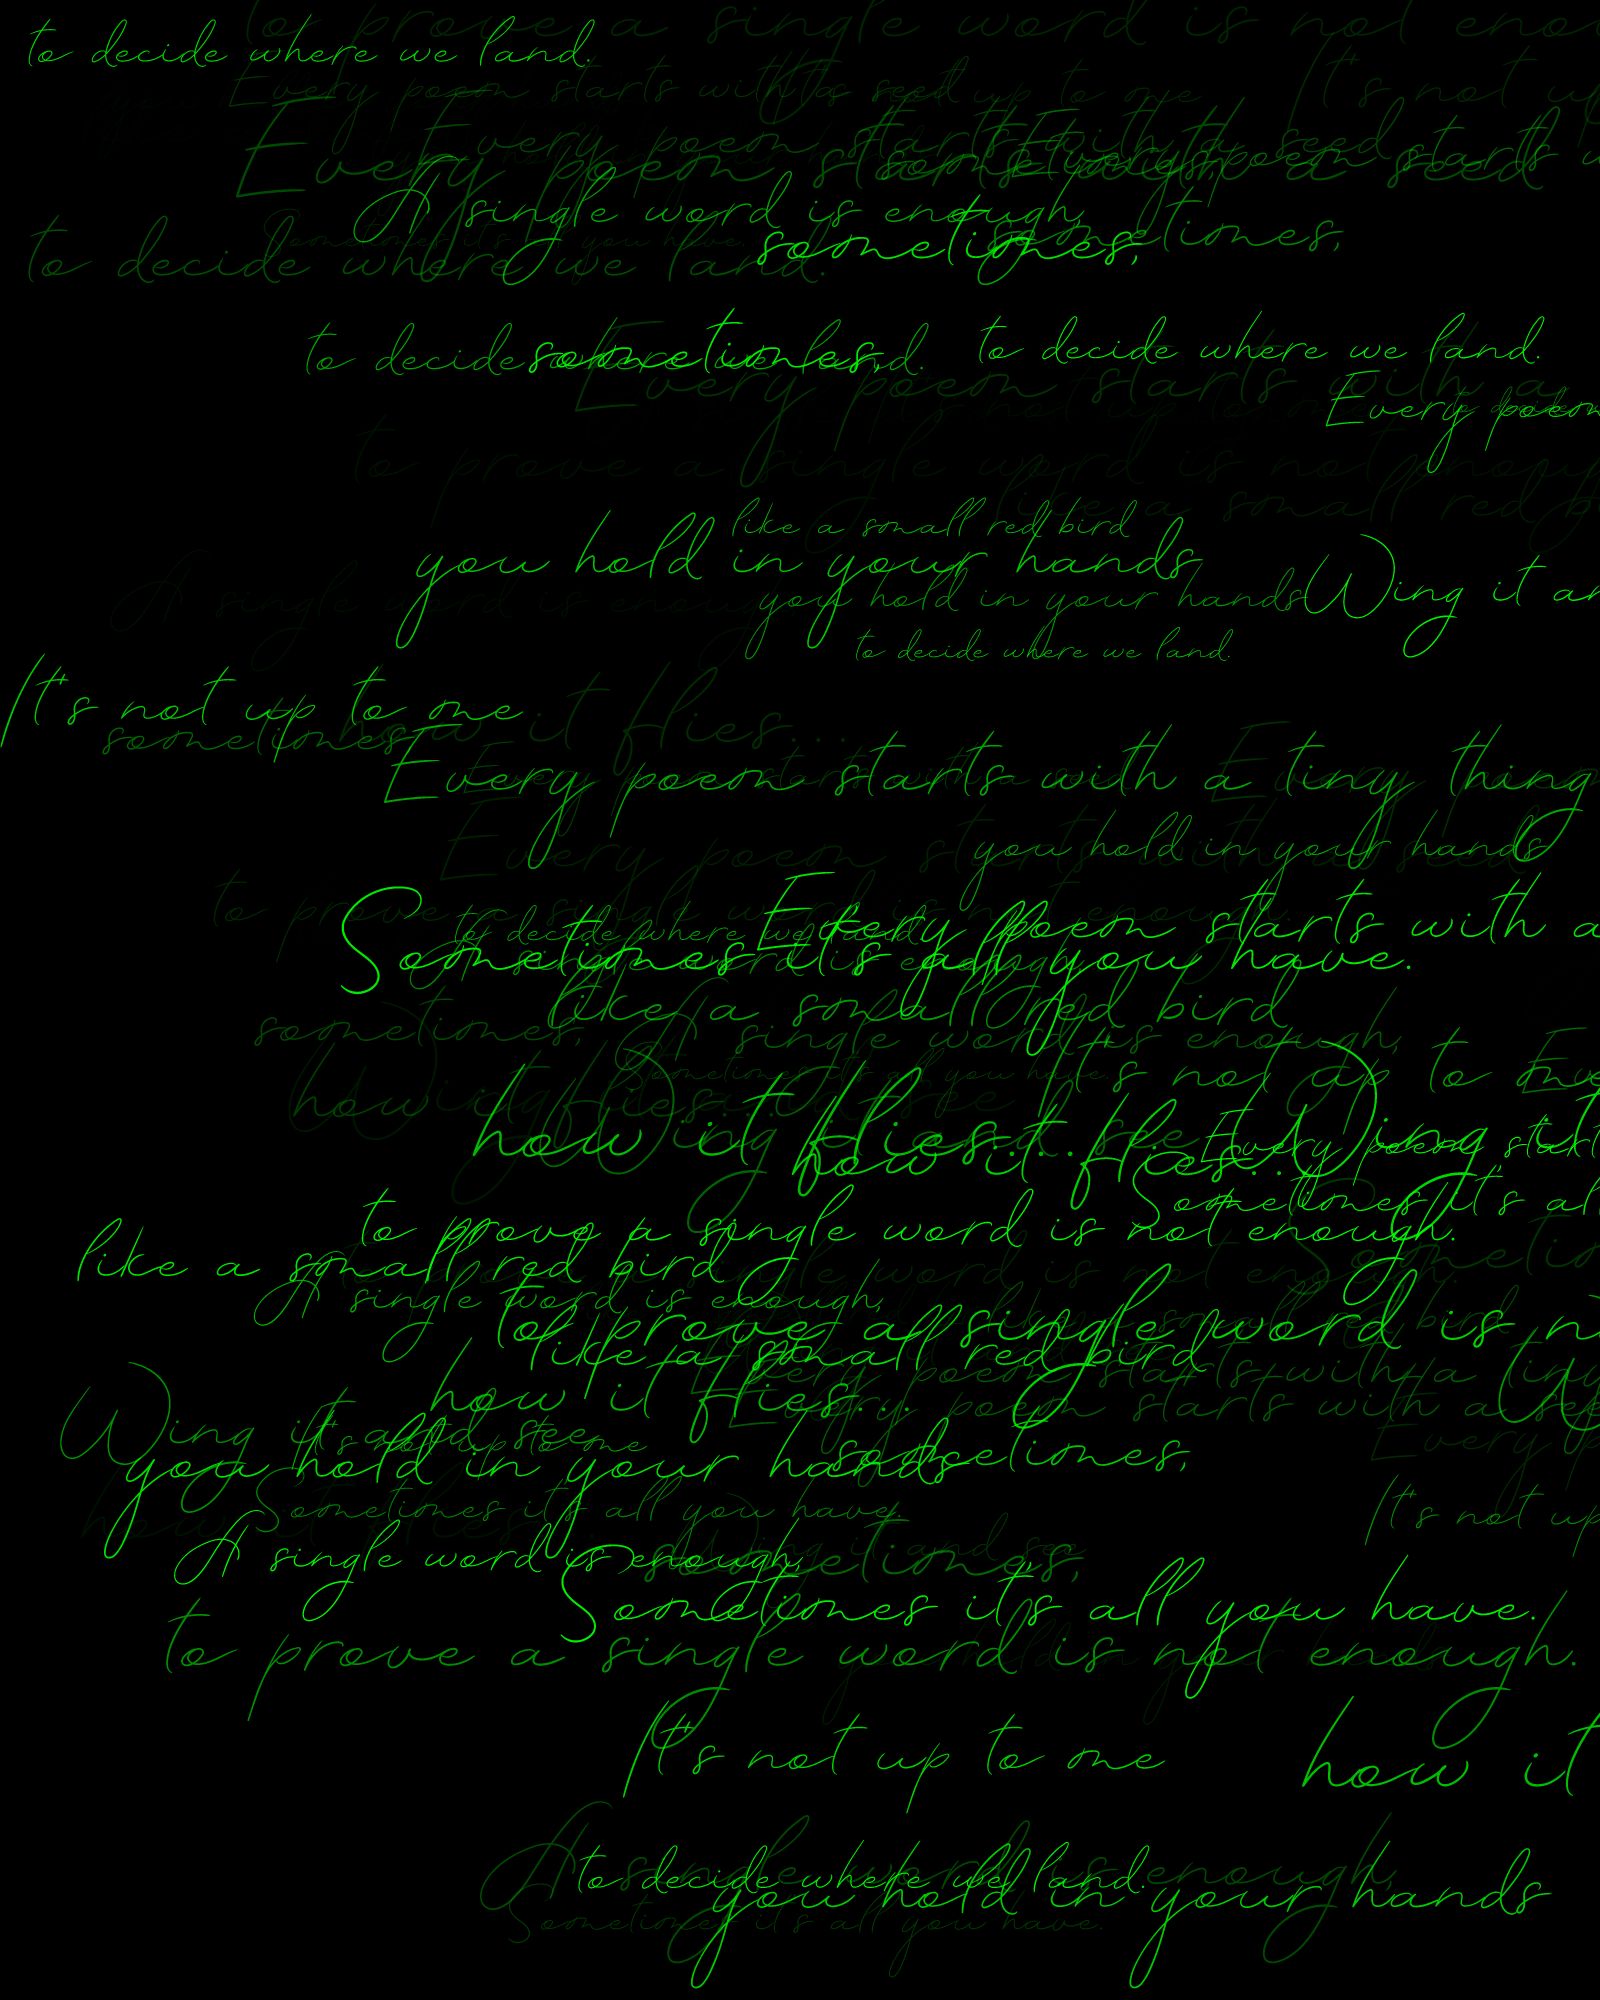 to prove a single word is not enou
to decide where we land.
Every poem starts with a seed
up to me
It's not up
Every poem starts with a seed
Every poem starts
Every poem starts with a seed
sometimes,
A single word is enough,
sometimes,
Sometimes it's all you have.
sometimes,
to decide where we land.
to decide where we land.
sometimes,
to decide where we land.
Every poem starts with a
Every poem
not up to me
to prove a single word is not enough
like a small red b
like a small red bird
you hold in your hands
A single word is enough,
you hold in your hands
Wing it an
to decide where we land.
It's not up to me
how it flies...
sometimes,
Every poem starts with a tiny thing
Every poem starts with a
you hold in your hands
to prove a single word is not enough.
Every poem starts with a
to decide where we land.
Sometimes it's all you have.
A single word is enough,
like a small red bird
sometimes,
A single word is enough,
Sometimes it's all you have.
It's not up to me
Eve
how it flies...
Wing it and see
how it flies...
Wing it and see
Wing it
Every poem start
how it flies...
Sometimes it's al
to prove a single word is not enough.
like a small red bird
sometim
A single word is enough,
to prove a single word is n
like a small red bird
like a small red bird
Every poem starts with a tiny
how it flies...
Every poem starts with a see
Wing it and see
It's not up to me
Every p
you hold in your hands
sometimes,
Sometimes it's all you have.
It's not up
how it flies...
Wing it and see
A single word is enough,
sometimes,
Sometimes it's all you have.
to prove a single word is not enough.
It's not up to me
how it
A single word is enough,
to decide where we land.
you hold in your hands
Sometimes it's all you have.